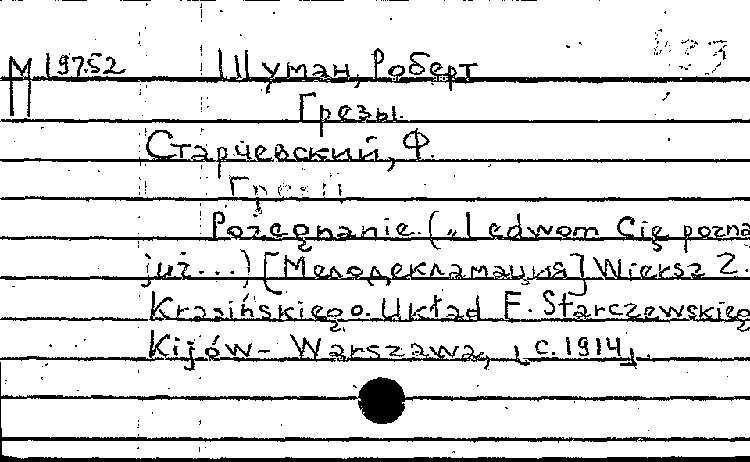 М 19752 Шуман, Роберт 433
П Грезы.
Старчевский, Ф.
Грезы
Pożegnanie. („Ledwom Cię pozna
już...) [Мелодекламация] Wiersz Z.
Krasińskiego. Układ F. Starczewskieg
Kijów - Warszawa, [c. 1914].